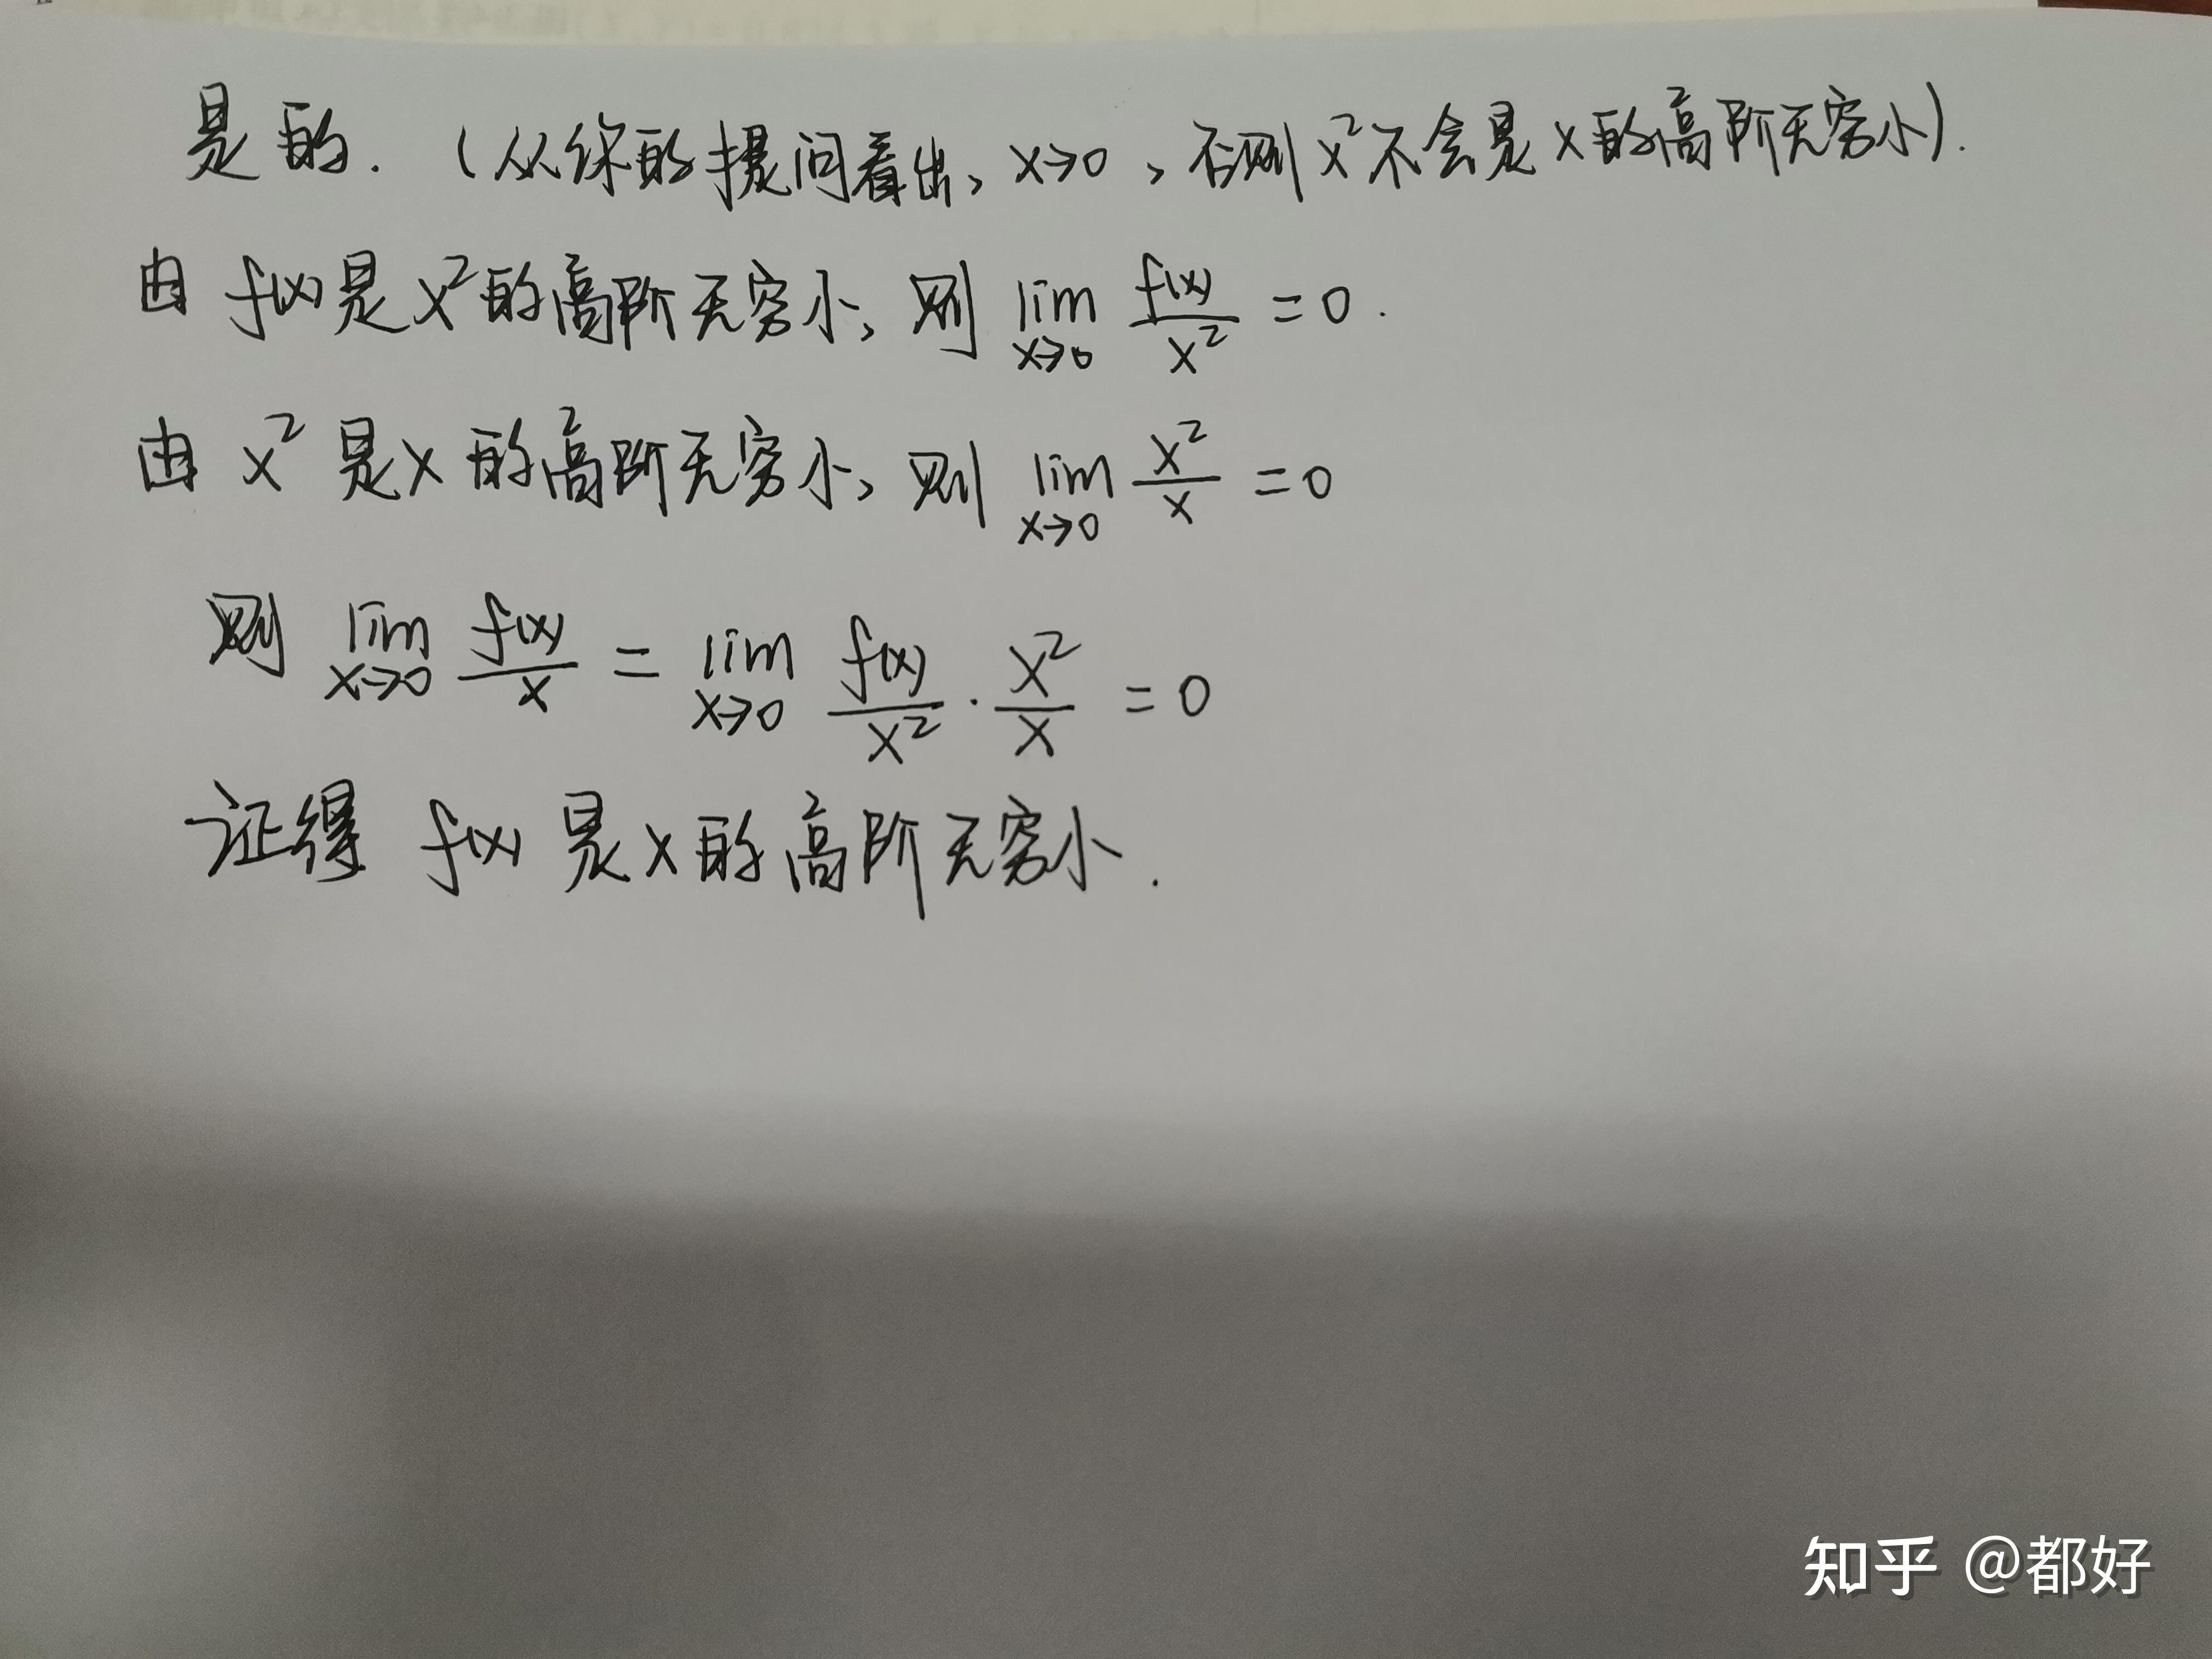 是的.（从你的提问看出，x→0，否则 x²不会是 x 的高阶无穷小).
由 f(x) 是 x² 的高阶无穷小，则 lim_{x→0} f(x)/x² = 0.
由 x² 是 x 的高阶无穷小，则 lim_{x→0} x²/x = 0
则 lim_{x→0} f(x)/x = lim_{x→0} f(x)/x² · x²/x = 0
证得 f(x) 是 x 的高阶无穷小.
知乎 @都好